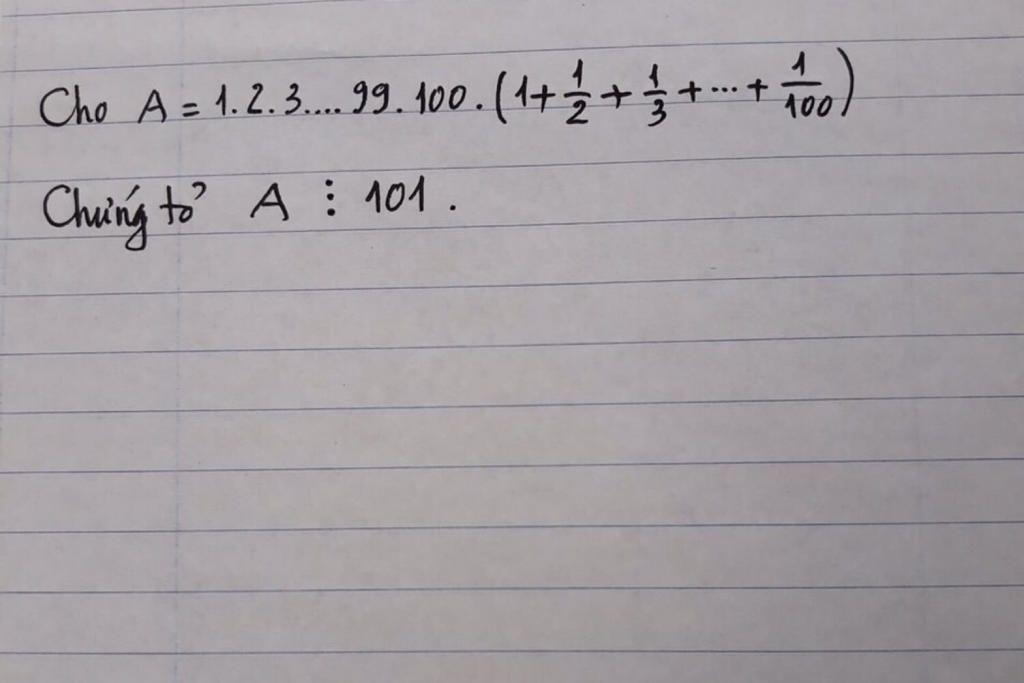 Cho A = 1.2.3....99.100.(1+1/2+1/3+...+1/100)
Chứng tỏ A ⋮ 101.